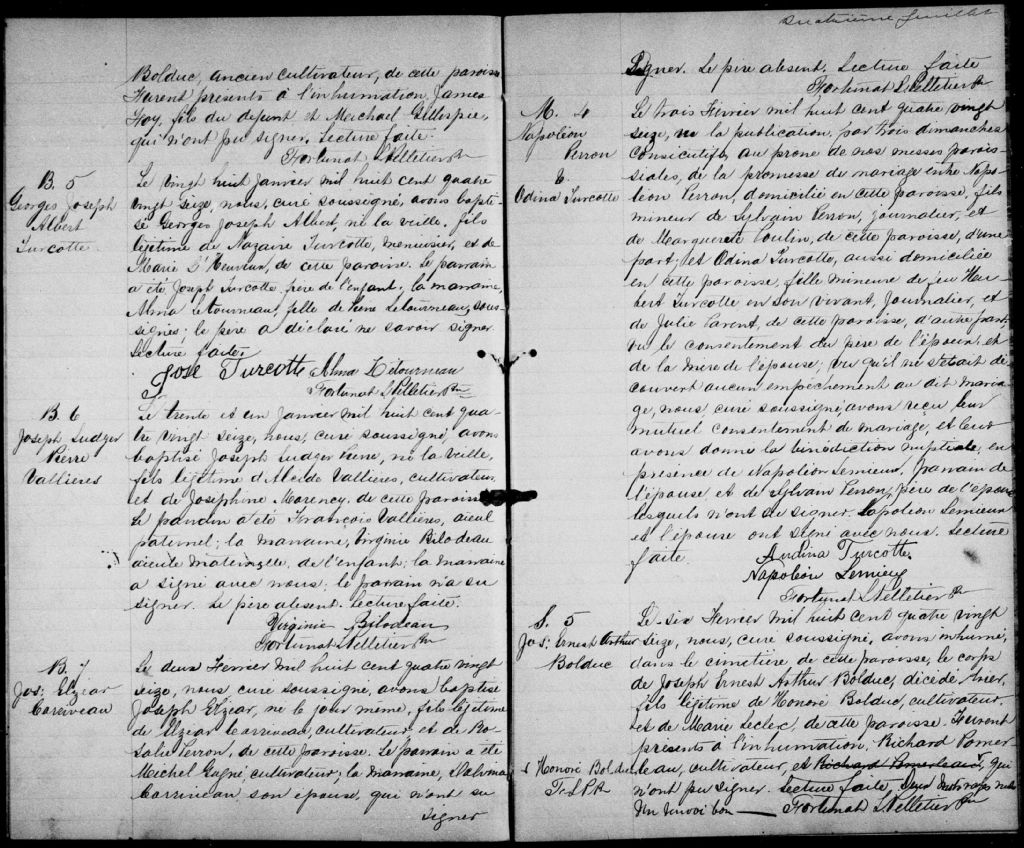 Bolduc, ancien cultivateur, de cette paroisse
Furent présents à l'inhumation, James
Foy, fils du défunt et Michael Gillespie,
qui n'ont pu signer. Lecture faite.
Fortunat L'Pelletier Ptre
B. 5
Georges Joseph
Albert
Turcotte
Le vingt huit Janvier mil huit cent quatre
vingt seize, nous, curé soussigné, avons bapti-
sé Georges Joseph Albert, né la veille, fils
légitime de Nazaire Turcotte, menuisier, et de
Marie L'Heureux, de cette paroisse. Le parrain
a été Joseph Turcotte, père de l'enfant; la marraine,
Alma Letourneau, fille de Pierre Letourneau, sous-
signés; le père a déclaré ne savoir signer
Lecture faite.
José Turcotte Alma Létourneau
Fortunat L'Pelletier Ptre
B. 6
Joseph Ludger
Pierre
Vallières
Le trente et un Janvier mil huit cent qua-
tre vingt seize, nous, curé soussigné, avons
baptisé Joseph Ludger Pierre, né la veille,
fils légitime d'Alcide Vallières, cultivateur
et de Josephine Marency, de cette paroisse
Le parrain a été François Vallières, aieul
paternel; la marraine, Virginie Bilodeau
aieule maternelle, de l'enfant; la marraine
a signé avec nous; le parrain n'a su
signer. Le père absent. Lecture faite.
Virginie Bilodeau
Fortunat L'Pelletier Ptre
B. 7
Jos: Elzéar
Corriveau
Le deux Fevrier mil huit cent quatre vingt
seize, nous, curé soussigné, avons baptisé
Joseph Elzéar, né le jour même, fils légitime
de Elzéar Corriveau, cultivateur, et de Ro-
salie Perron, de cette paroisse. Le parrain a été
Michel Gagné, cultivateur; la marraine,
Corriveau son épouse, qui n'ont su
signer
quatrième feuillet
Signer. Le père absent. Lecture faite
Fortunat L'Pelletier Ptre
M. 4
Napoléon
Perron
&
Odina Turcotte
Le trois Février mil huit cent quatre vingt
seize, vu la publication, par trois dimanches
consécutifs, au prone de nos messes parois-
siales, de la promesse de mariage entre Napo-
léon Perron, domiciliée en cette paroisse, fils
mineur de Sylvain Perron, journalier, et
de Marguerite Poulin, de cette paroisse, d'une
part; et Odina Turcotte, aussi domiciliée
en cette paroisse, fille mineure de feu Hu-
bert Turcotte en son vivant, journalier, et
de Julie Parent, de cette paroisse, d'autre part,
vu le consentement du père de l'époux et
de la mère de l'épouse; vu qu'il ne s'etait dé-
couvert aucun empêchement au dit maria-
ge, nous, curé soussigné, avons reçu leur
mutuel consentement de mariage, et leur
avons donné la bénédiction nuptiale, en
présence de Napoléon Lemieux, parrain de
l'épouse et de Sylvain Perron, père de l'époux
lesquels n'ont su signer. Napoléon Lemieux
et l'épouse ont signé avec nous. Lecture
faite.
Audina Turcotte
Napoléon Lemieux
Fortunat L'Pelletier Ptre
S. 5
Jos: Ernest Arthur
Bolduc
Le six Fevrier mil huit cent quatre vingt
seize, nous, curé soussigné, avons inhumé,
dans le cimetière de cette paroisse, le corps
de Joseph Ernest Arthur Bolduc, décédé hier,
fils légitime de Honoré Bolduc, cultivateur
et de Marie Leclerc, de cette paroisse. Furent
présents à l'inhumation, Richard Pomer-
leau, cultivateur, et Richard Pomerleau, qui
n'ont pu signer. Lecture faite, Deux mots rayés nuls
Un renvoi bon — Fortunat L'Pelletier Ptre
Honoré Bolduc
F. L P Ptr